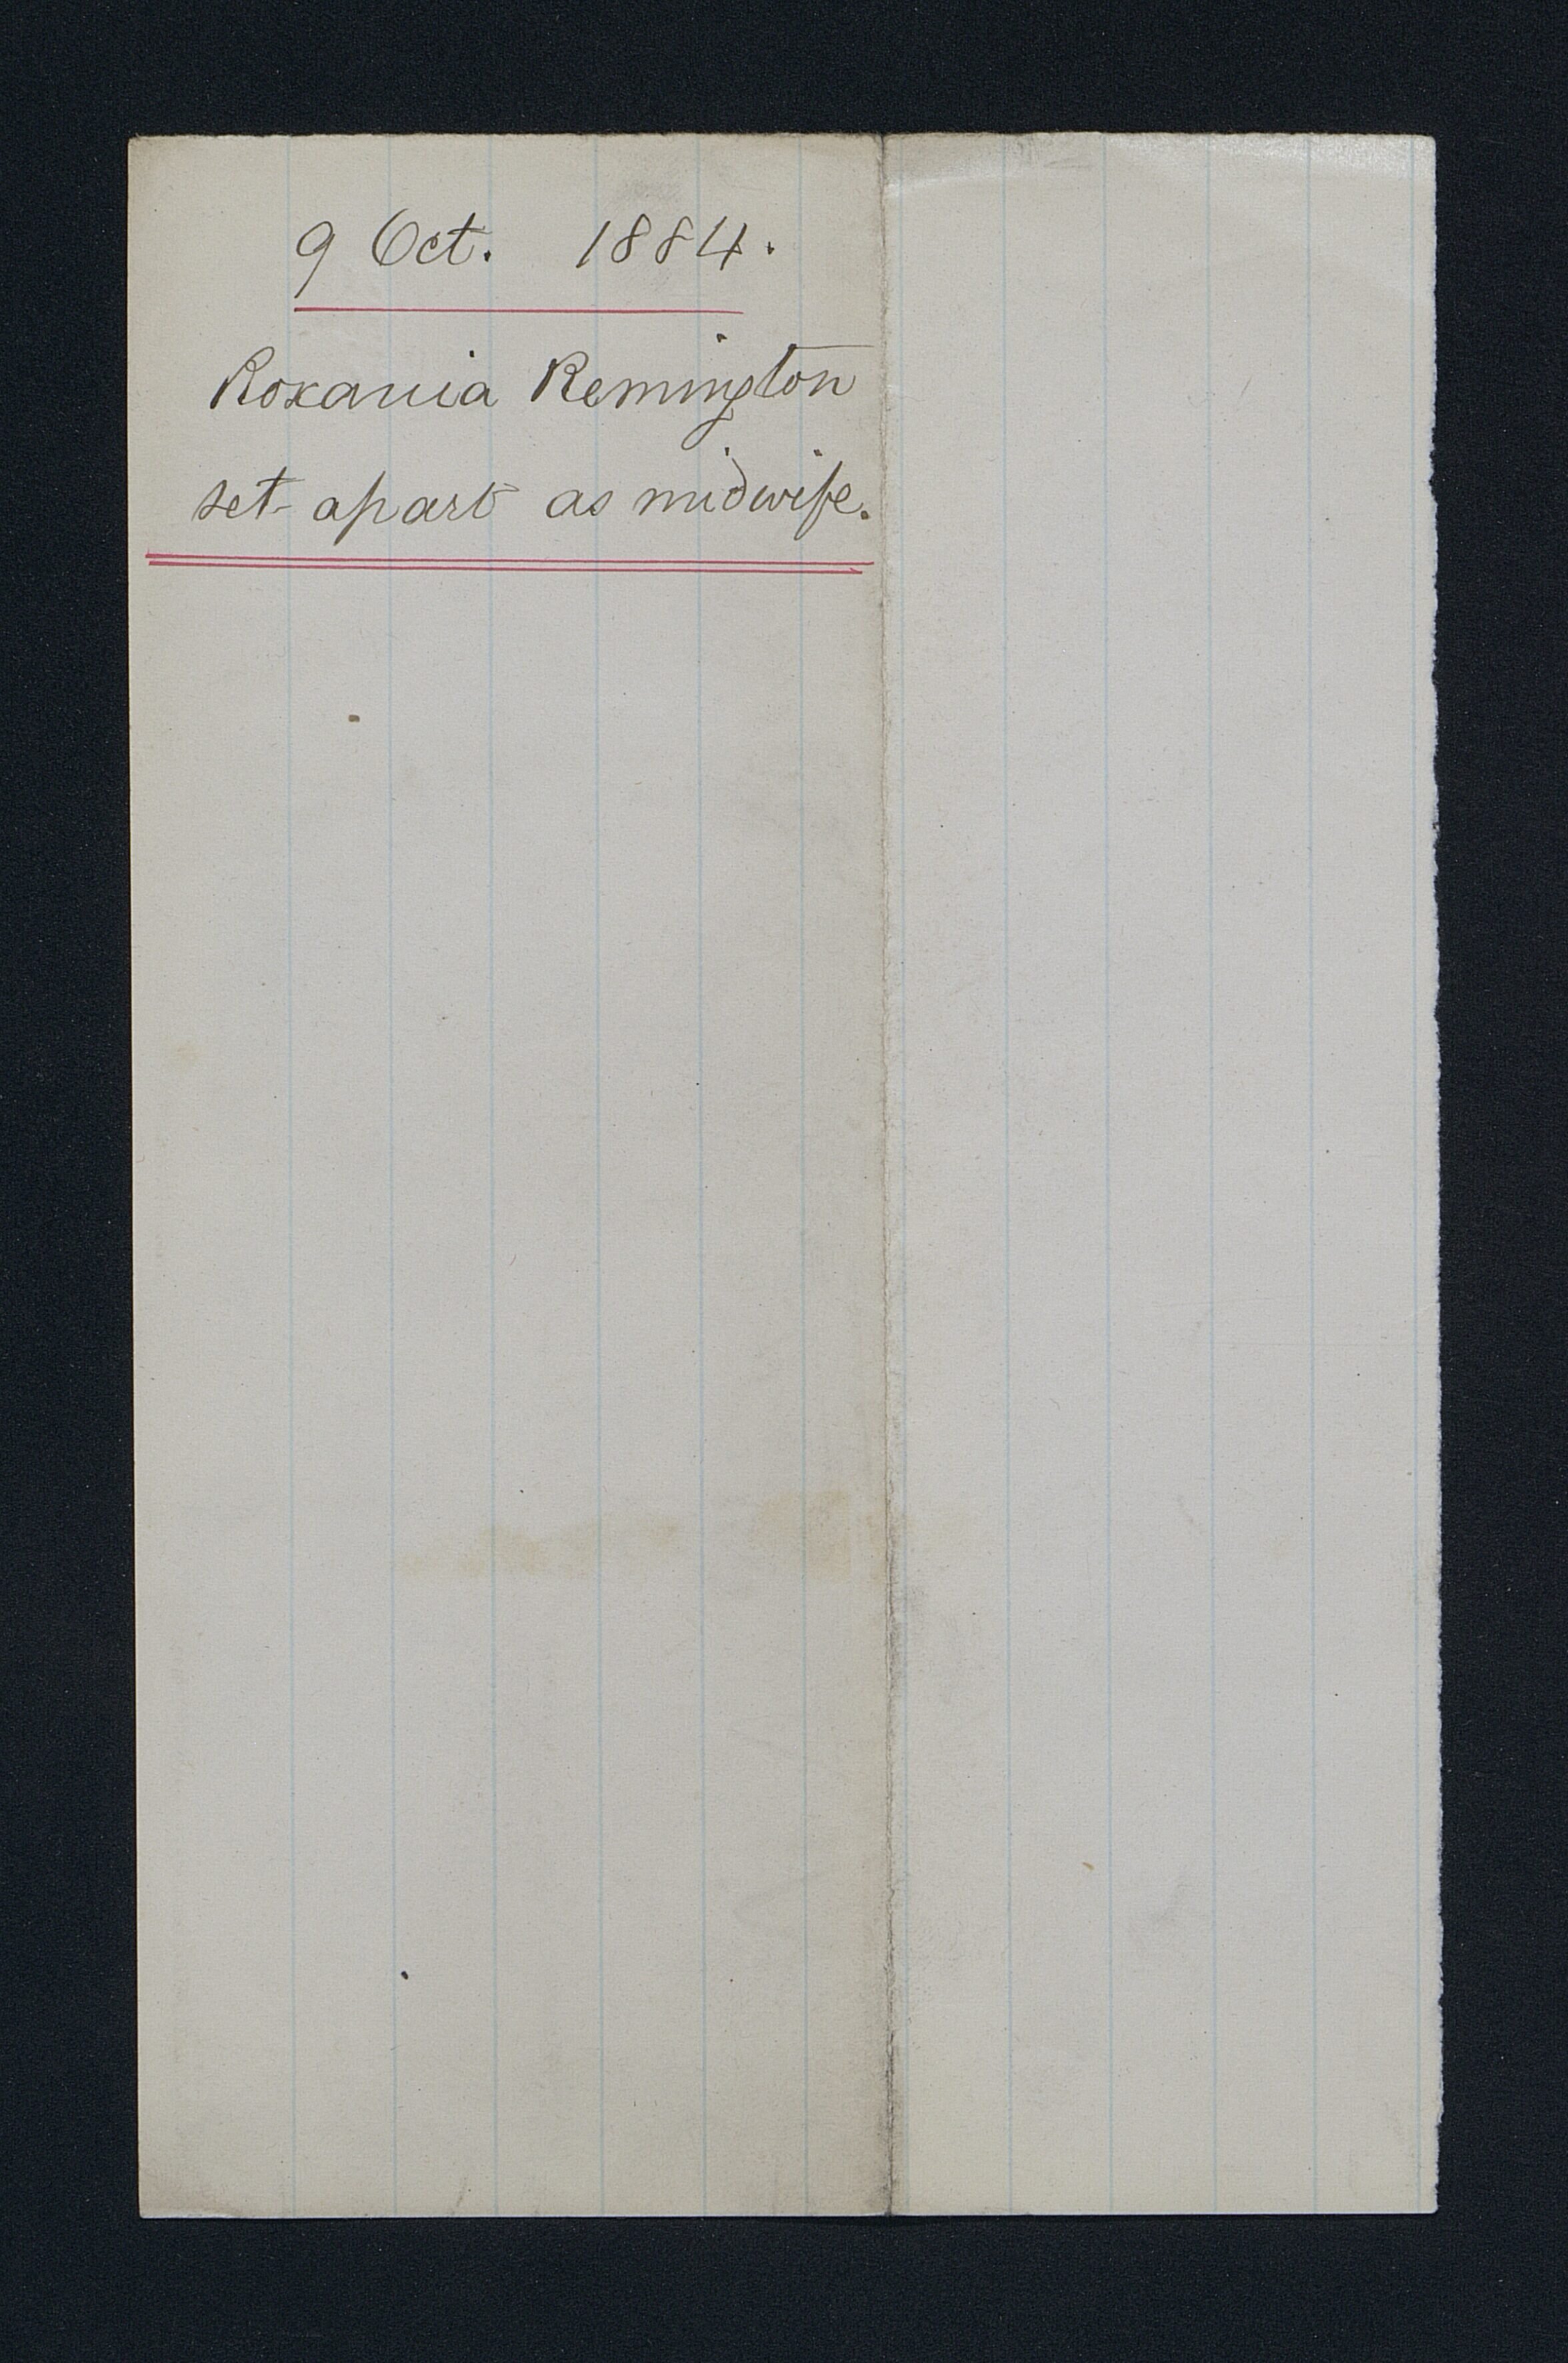 9 Oct. 1884.
Roxania Remington
set apart as midwife.